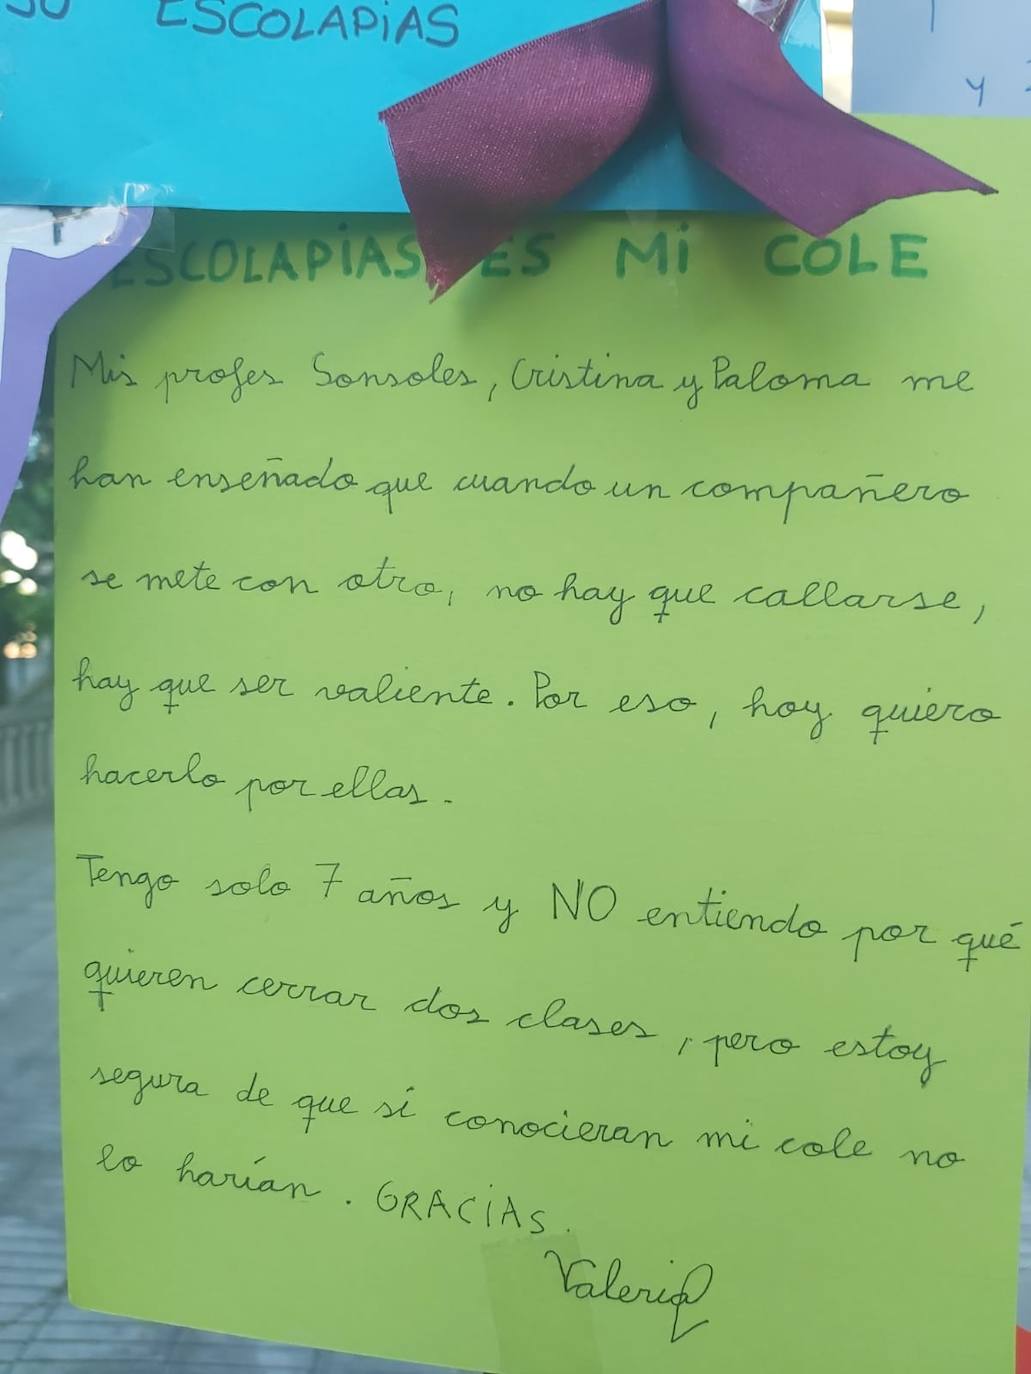 ESCOLAPiAS
y
ESCOLAPiAS ES Mi COLE
Mis profes Sonsoles, Cristina y Paloma me
han enseñado que cuando un compañero
se mete con otro, no hay que callarse,
hay que ser valiente. Por eso, hoy quiero
hacerlo por ellas.
Tengo solo 7 años y NO entiendo por qué
quieren cerrar dos clases, pero estoy
segura de que si conocieran mi cole no
lo harían. GRACiAS.
Valeria